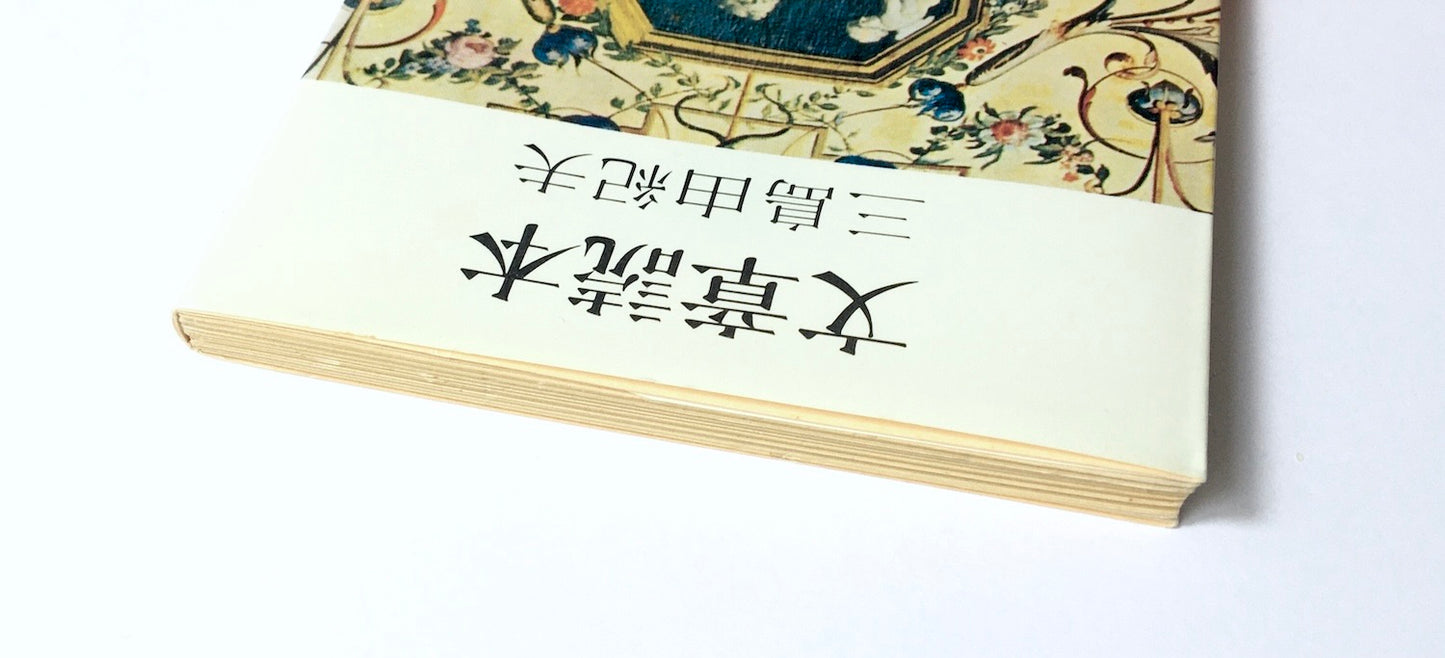 文章読本
三島由紀夫